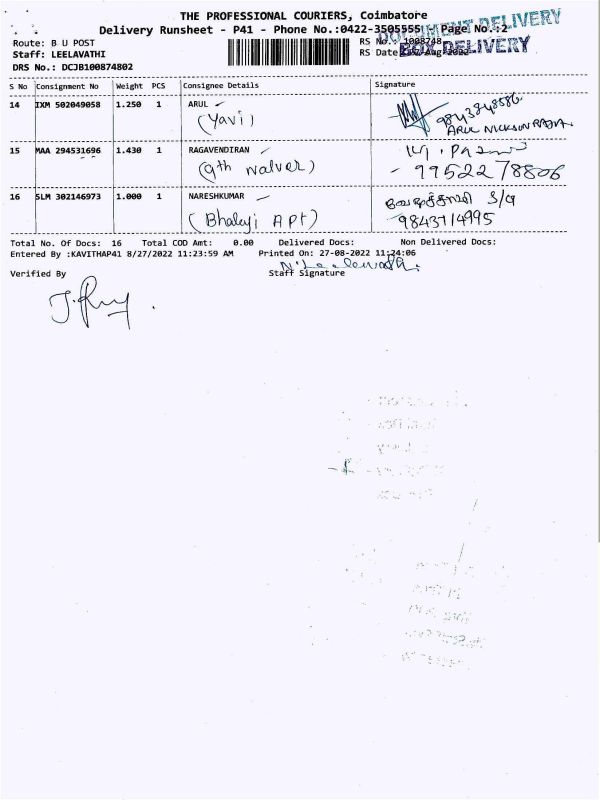 THE PROFESSIONAL COURIERS, Coimbatore
Delivery Runsheet - P41 - Phone No.:0422-3505555 Page No.:2
DOCUMENT DELIVERY
BOX DELIVERY
Route: B U POST
RS No.: 1008748
Staff: LEELAVATHI
RS Date: 27-Aug-2022
DRS No.: DCJB100874802
S No Consignment No Weight PCS Consignee Details Signature
14 IXM 502049058 1.250 1 ARUL
(Yavi)
9843848586
ARUL NICKSON RAJA
15 MAA 294531696 1.430 1 RAGAVENDIRAN
(9th valver)
99522 78806
16 SLM 302146973 1.000 1 NARESHKUMAR
(Bhalaji Apt)
S/G
9843714995
Total No. Of Docs: 16 Total COD Amt: 0.00 Delivered Docs: Non Delivered Docs:
Entered By :KAVITHAP41 8/27/2022 11:23:59 AM Printed On: 27-08-2022 11:24:06
N. Leelavathi.
Verified By Staff Signature